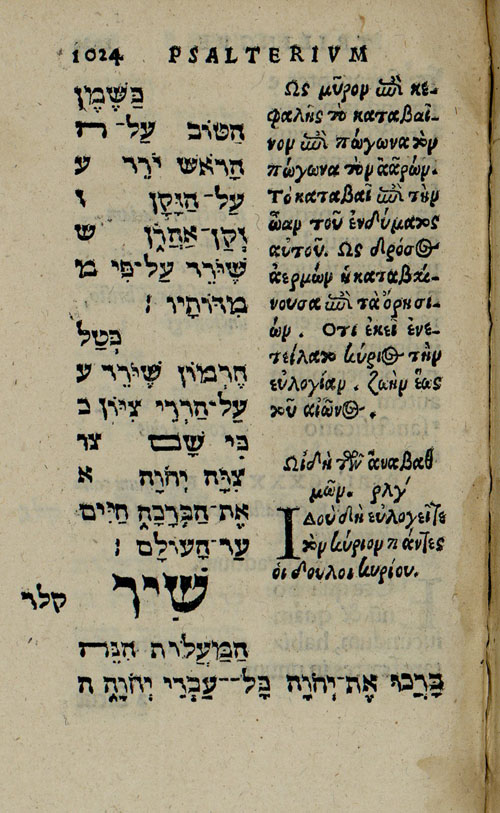 1024 PSALTERIVM
כַּשֶּׁמֶן
הַטּוֹב עַל־ה
הָרֹאשׁ יֹרֵד ע
עַל־הַזָּקָן ז
זְקַן־אַהֲרֹן ש
שֶׁיֹּרֵד עַל־פִּי מ
מִדּוֹתָיו :
כְּטַל
חֶרְמוֹן שֶׁיֹּרֵד ע
עַל־הַרְרֵי צִיּוֹן כ
כִּי שָׁם צו
צִוָּה יְהֹוָה א
אֶת־הַבְּרָכָה חַיִּים
עַד־הָעוֹלָם :
שִׁיר קלד
הַמַּעֲלוֹת הִנֵּה
בָּרֲכוּ אֶת־יְהֹוָה כָּל־־עַבְדֵי יְהֹוָה ה
Ὡς μῦρον ἐπὶ κε-
φαλῆς τὸ καταβαῖ-
νον ἐπὶ πώγωνα τὸν
πώγωνα τὸν ἀαρών.
Τὸ καταβαῖ ἐπὶ τὴν
ὤαν τοῦ ἐνδύματος
αὐτοῦ. Ὡς δρόσος
ἀερμὼν ἡ καταβαί-
νουσα ἐπὶ τὰ ὄρη σι-
ών. Ὅτι ἐκεῖ ἐνε-
τείλατο κύριος τὴν
εὐλογίαν. ζωὴν ἕως
τοῦ αἰῶνος.
Ὠιδὴ τῶν ἀναβαθ
μῶν. ρλγ´
Ἰδοὺ δὴ εὐλογεῖτε
τὸν κύριον πάντες
οἱ δοῦλοι κυρίου.